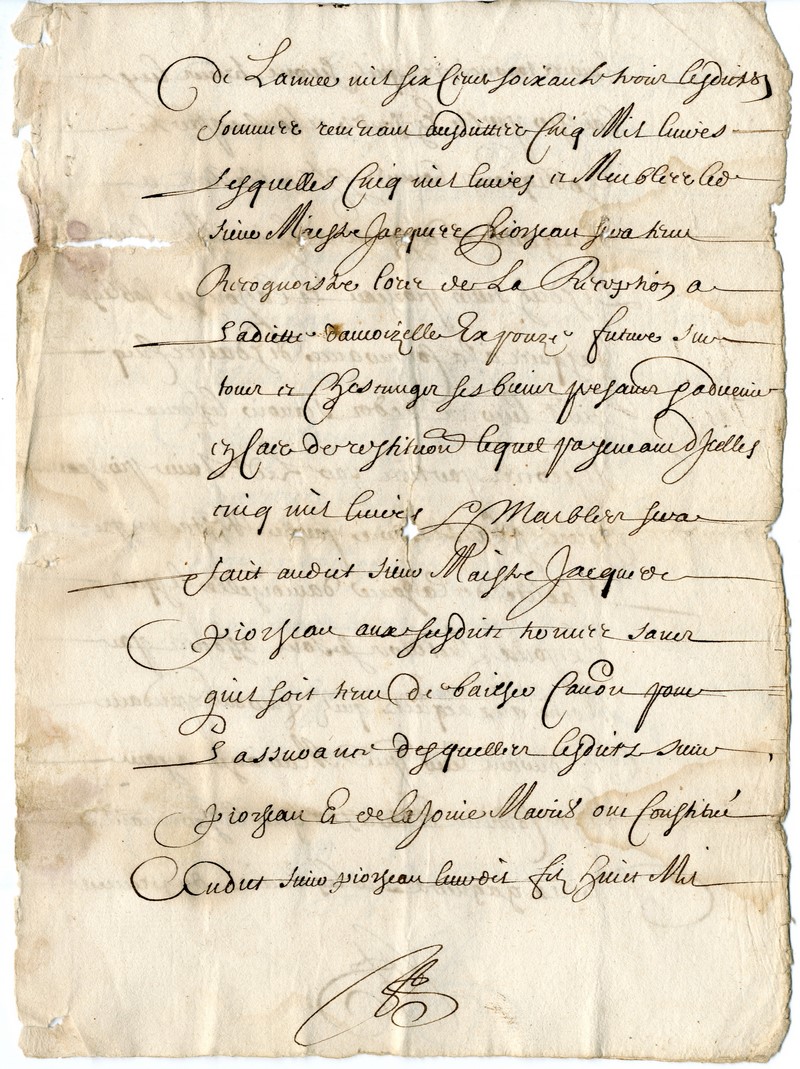 de Lannee mil six Cens soixante trois lesdittes
sommes revenant ausdittes Cinq Mil livres
Lesquelles Cinq mil livres et Meubles led
sieur Maistre Jacques Piorseau sera tenu
Recognoistre lors de La Reception a
Ladicte damoizelle Expouze future sur
tous et Chescungs ses biens presans et advenir
en Cas de restitution lequel payement d'Icelles
cinq mil livres et Meubles sera
faict audict sieur Maistre Jacques
piorseau aux susdits termes sans
quil soit tenu de bailler Caution pour
Lassurance desquelles lesdicts sieur
piorseau Et de Maries ont Constitué
Audict sieur piorseau leurdit filz huict Mil